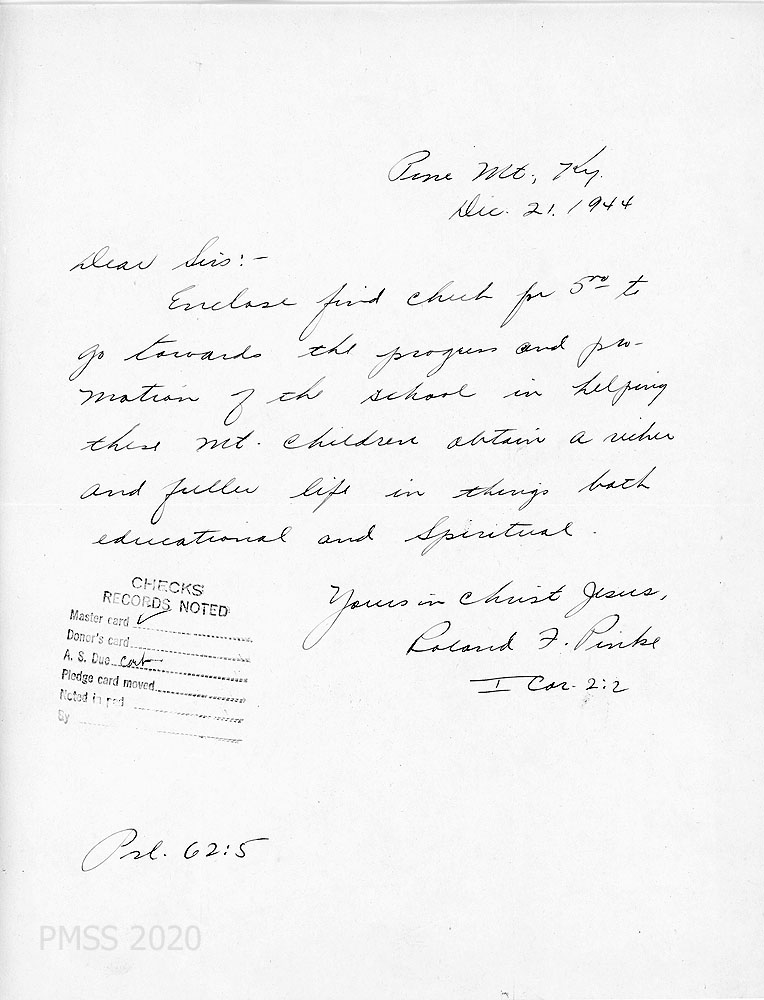 Pine Mt., Ky.
Dec. 21, 1944
Dear Sirs:-
Enclose find check for 5.00 to
go towards the progress and pro-
motion of the school in helping
these Mt. children obtain a richer
and fuller life in things both
educational and Spiritual.
Yours in Christ Jesus,
Roland F. Pinke
I Cor. 2:2
CHECKS
RECORDS NOTED
Master card ✓
Donor's card
A. S. Due
Pledge card moved
Noted in red
By
Psl. 62:5
PMSS 2020